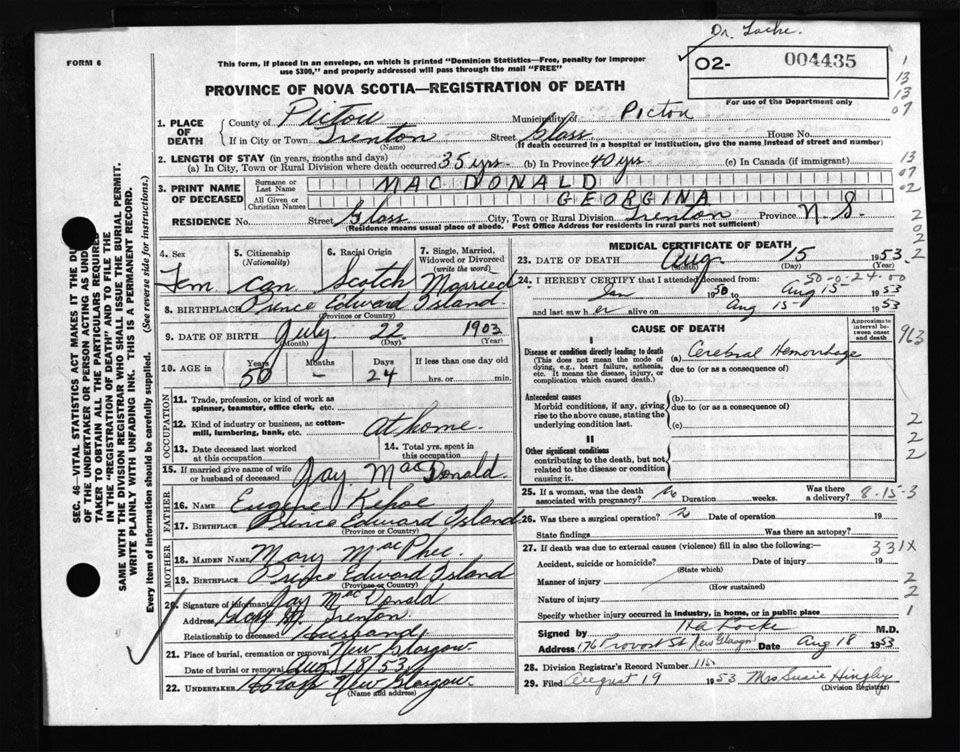 Dr. Locke.
FORM 6
This form, if placed in an envelope, on which is printed "Dominion Statistics—Free, penalty for improper
use $300," and properly addressed will pass through the mail "FREE"
02- 004435
For use of the Department only
PROVINCE OF NOVA SCOTIA—REGISTRATION OF DEATH
1
13
13
07
1. PLACE OF DEATH
County of Pictou Municipality of Pictou
If in City or Town Trenton Street Glass House No.
(Name) (If death occurred in a hospital or institution, give the name instead of street and number)
2. LENGTH OF STAY (in years, months and days)
(a) In City, Town or Rural Division where death occurred 35 yrs. (b) In Province 40 yrs. (c) In Canada (if immigrant)
13
07
02
3. PRINT NAME OF DECEASED
Surname or Last Name MAC DONALD
All Given or Christian Names GEORGINA
RESIDENCE No. Street Glass City, Town or Rural Division Trenton Province N. S.
(Residence means usual place of abode. Post Office Address for residents in rural parts not sufficient)
2
02
2
4. Sex
Fem
5. Citizenship (Nationality)
Can
6. Racial Origin
Scotch
7. Single, Married, Widowed or Divorced (write the word)
Married
8. BIRTHPLACE Prince Edward Island
(Province or Country)
9. DATE OF BIRTH July 22 1903
(Month) (Day) (Year)
10. AGE in Years Months Days If less than one day old
50 - 24 hrs. or min.
OCCUPATION
11. Trade, profession, or kind of work as
spinner, teamster, office clerk, etc.
12. Kind of industry or business, as cotton-
mill, lumbering, bank, etc. at home.
13. Date deceased last worked
at this occupation
14. Total yrs. spent in
this occupation
15. If married give name of wife
or husband of deceased Jay Mac Donald
FATHER
16. Name Eugene Kehoe
17. Birthplace Prince Edward Island
(Province or Country)
MOTHER
18. Maiden Name Mary MacPhee
19. Birthplace Prince Edward Island
(Province or Country)
20. Signature of informant Jay Mac Donald
Address Glass St. Trenton
Relationship to deceased Husband
21. Place of burial, cremation or removal New Glasgow
Date of burial or removal Aug 18 53
22. UNDERTAKER New Glasgow
(Name and address)
MEDICAL CERTIFICATE OF DEATH
23. DATE OF DEATH Aug. 15 1953
(Month) (Day) (Year)
2
24. I HEREBY CERTIFY that I attended deceased from: 50-0-24-00
Jan 1950 to Aug 15- 1953
and last saw her alive on Aug 15- 1953
CAUSE OF DEATH
Approximate interval between onset and death
963
I
Disease or condition directly leading to death
(This does not mean the mode of
dying, e.g., heart failure, asthenia,
etc. It means the disease, injury, or
complication which caused death.)
(a) Cerebral Hemorrhage
due to (or as a consequence of)
Antecedent causes
Morbid conditions, if any, giving
rise to the above cause, stating the
underlying condition last.
(b)
due to (or as a consequence of)
(c)
II
Other significant conditions
contributing to the death, but not
related to the disease or condition
causing it.
2
2
2
25. If a woman, was the death
associated with pregnancy? No Duration weeks. Was there a delivery? 8-15-3
26. Was there a surgical operation? Date of operation 19
State findings Was there an autopsy?
27. If death was due to external causes (violence) fill in also the following:—
331X
Accident, suicide or homicide? Date of injury 19
(State which)
Manner of injury
(How sustained)
2
Nature of injury
2
Specify whether injury occurred in industry, in home, or in public place
1
Signed by Locke M.D.
Address 176 Provost St New Glasgow Date Aug 18 1953
28. Division Registrar's Record Number 116
29. Filed August 19 1953 Mrs Susie Hingley
(Division Registrar)
SEC. 46—VITAL STATISTICS ACT MAKES IT THE DUTY
OF THE UNDERTAKER OR PERSON ACTING AS UNDER-
TAKER TO OBTAIN ALL THE PARTICULARS REQUIRED
IN THE "REGISTRATION OF DEATH" AND TO FILE THE
SAME WITH THE DIVISION REGISTRAR WHO SHALL ISSUE THE BURIAL PERMIT.
WRITE PLAINLY WITH UNFADING INK. THIS IS A PERMANENT RECORD.
Every item of information should be carefully supplied. (See reverse side for instructions.)